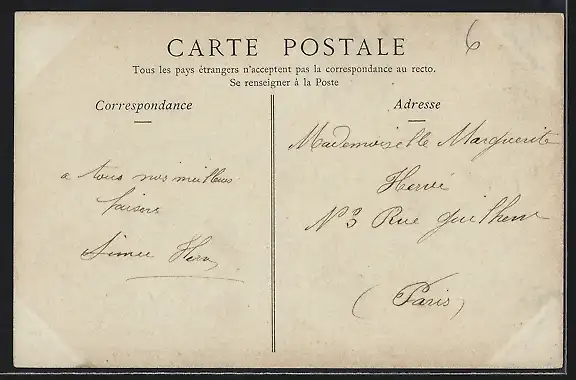 6
CARTE POSTALE
Tous les pays étrangers n'acceptent pas la correspondance au recto.
Se renseigner à la Poste
Correspondance
a tous nos meilleurs
baisers
Aimée Hervé
Adresse
Mademoiselle Marguerite
Hervé
N° 3 Rue Guilhem
(Paris)